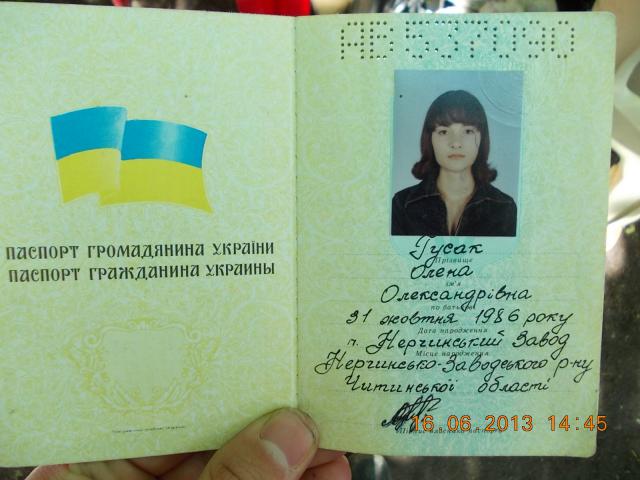 ПАСПОРТ ГРОМАДЯНИНА УКРАЇНИ
ПАСПОРТ ГРАЖДАНИНА УКРАИНЫ
АВ537090
Гусак
Прізвище
Олена
Ім'я
Олександрівна
по батькові
31 жовтня 1986 року
Дата народження
п. Нерчинський Завод
Місце народження
Нерчинсько-Заводського р-ну
Читинської області
16.06.2013 14:45